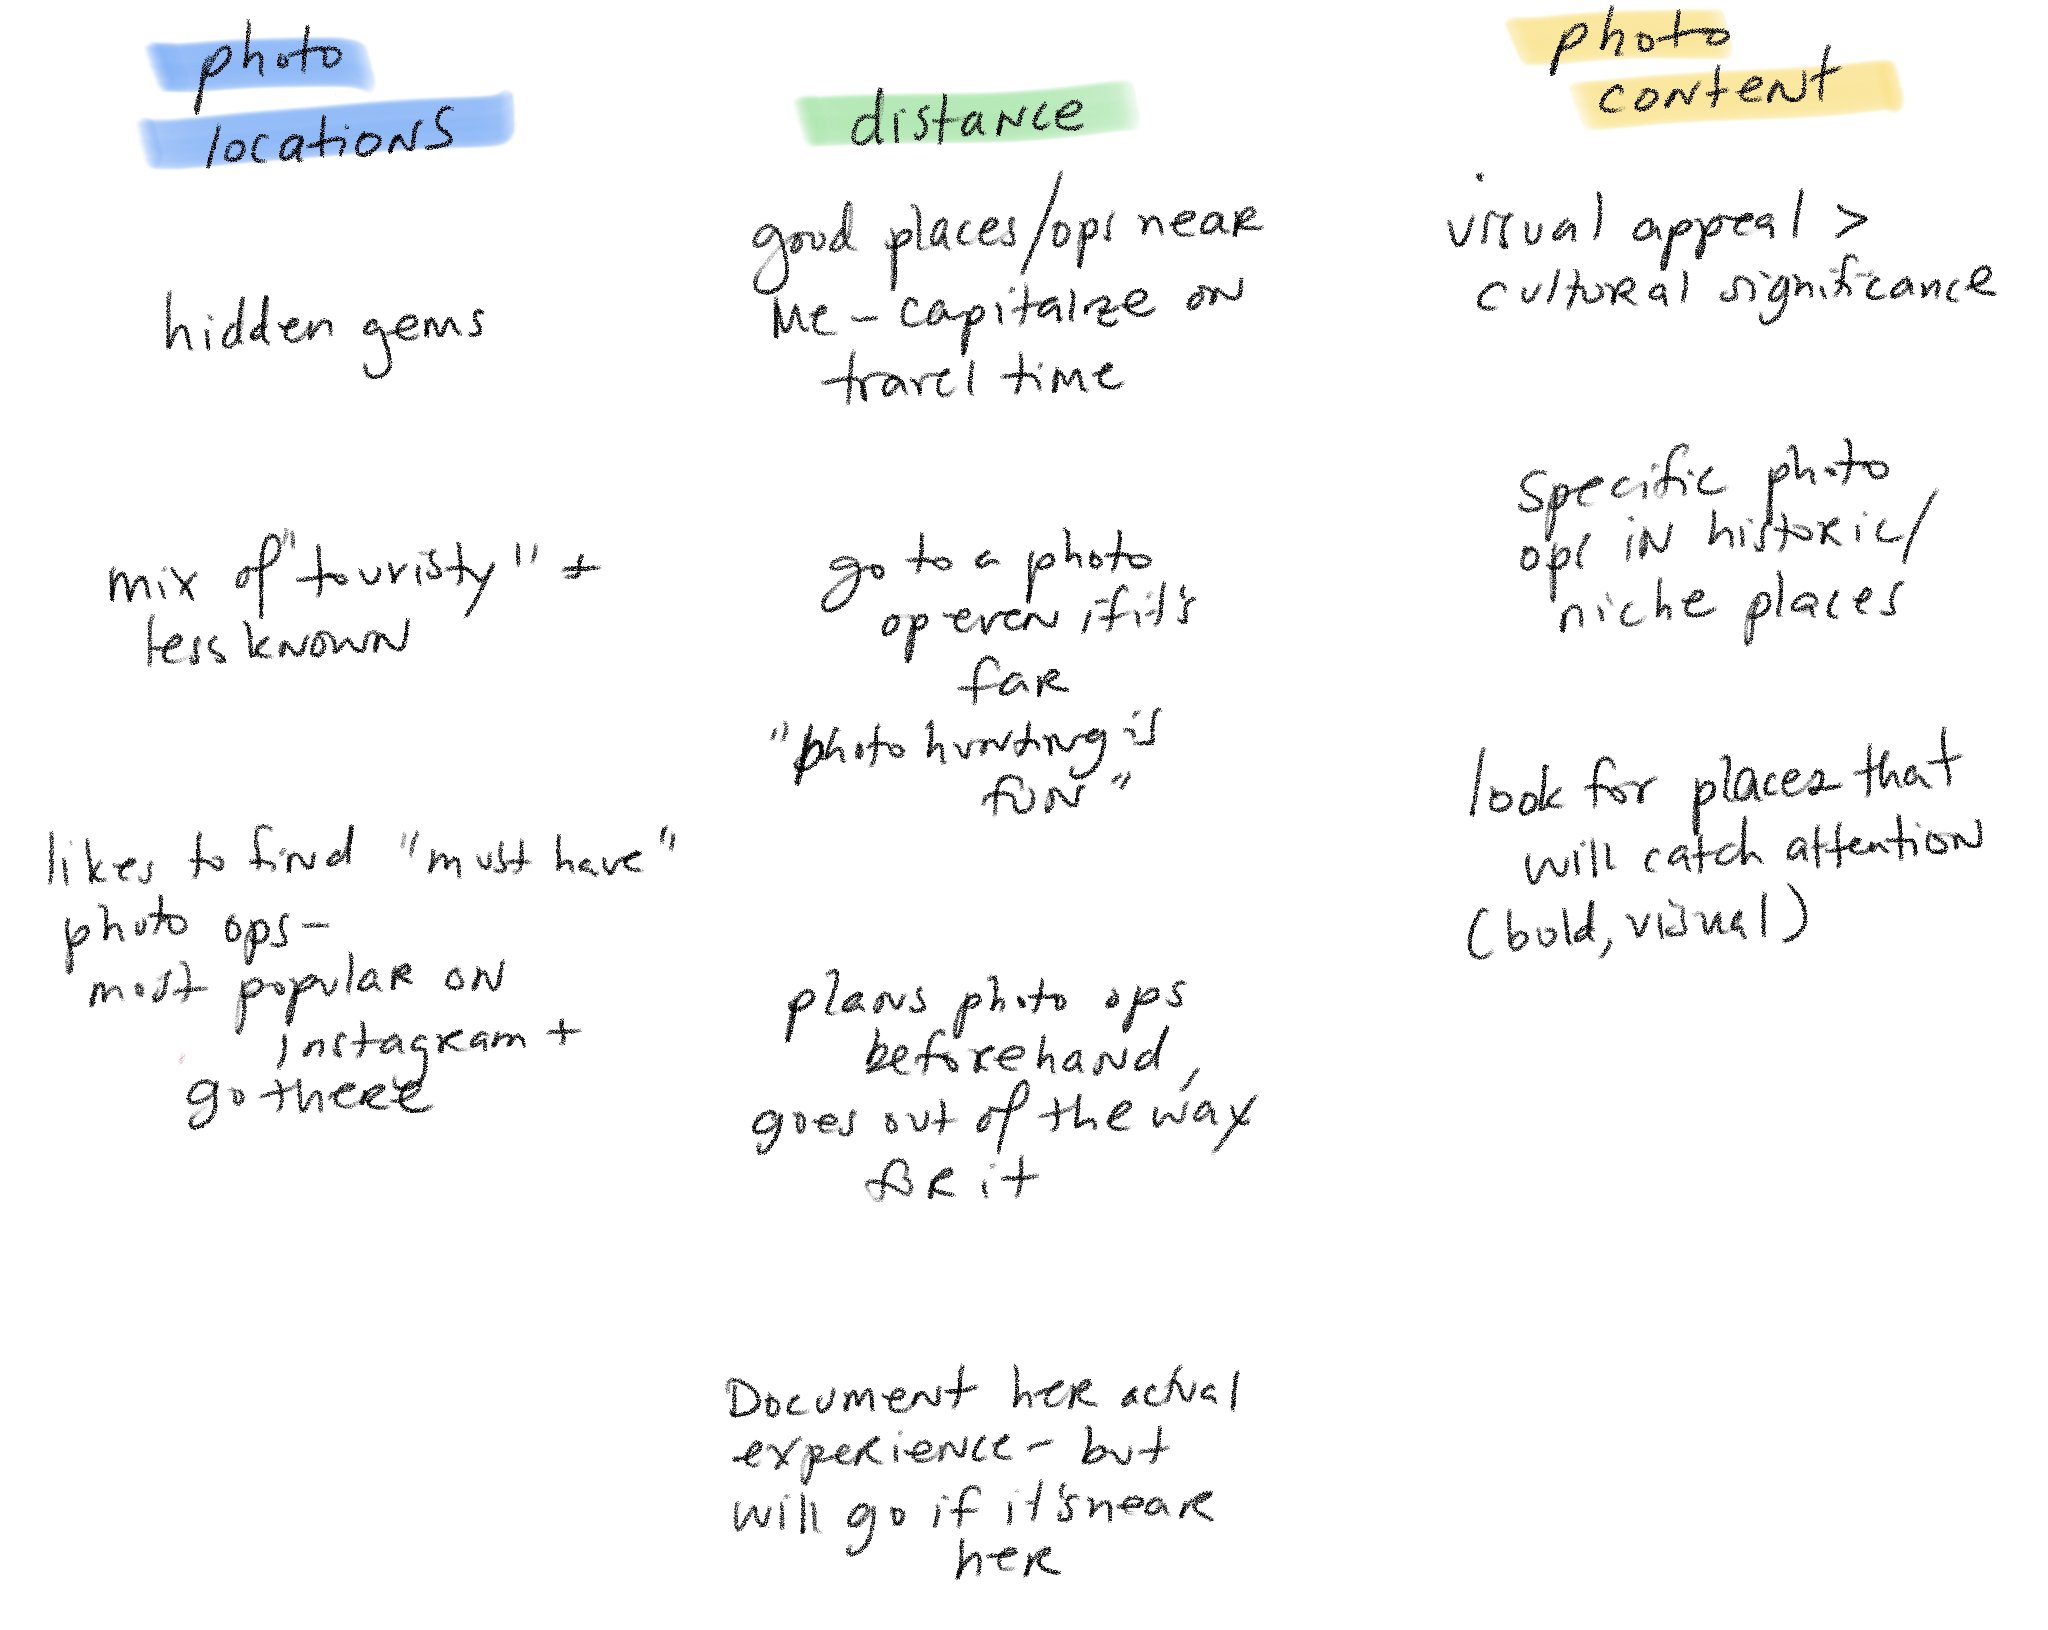 photo
locations
hidden gems
mix of "touristy" +
less known
likes to find "must have"
photo ops -
most popular on
instagram +
go there
distance
good places/ops near
me - capitalize on
travel time
go to a photo
op even if it's
far
"photo hunting is
fun"
plans photo ops
beforehand,
goes out of the way
for it
Document her actual
experience - but
will go if it's near
her
photo
content
visual appeal >
cultural significance
Specific photo
ops in historic/
niche places
look for places that
will catch attention
(bold, visual)